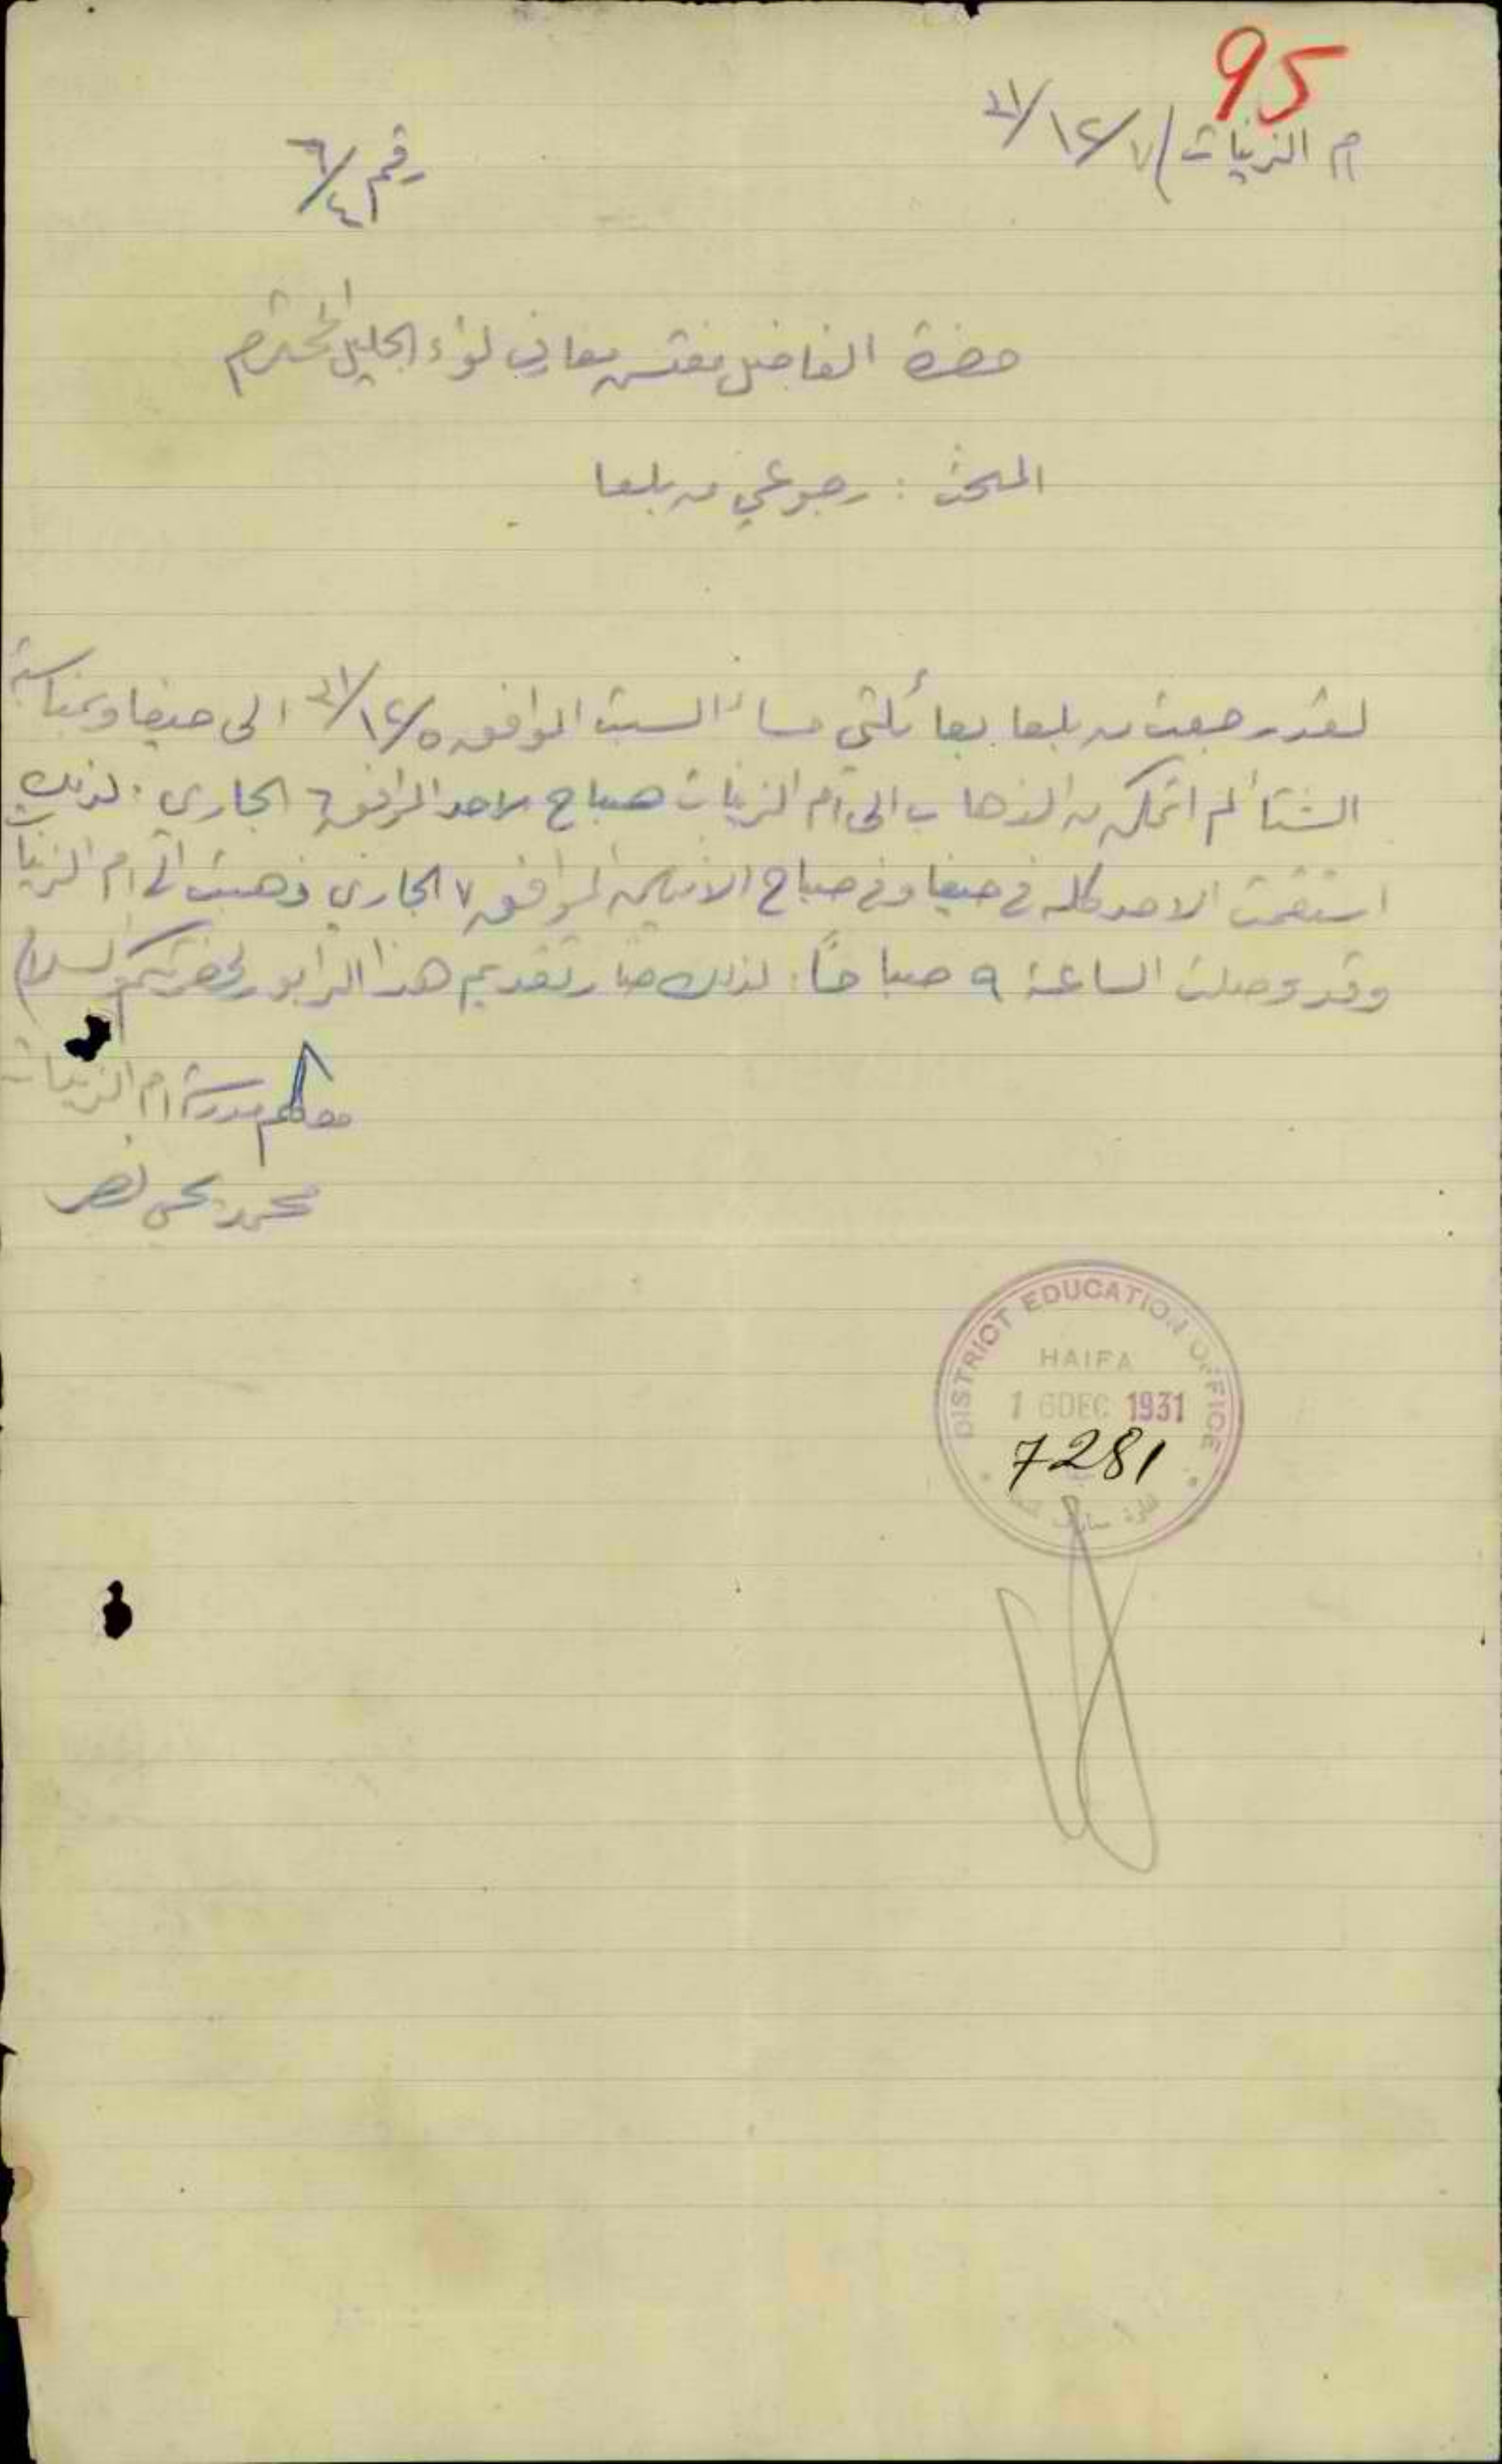 95
ام الزينات ٧/١٢/٣١
رقم ٤١/٦
حضرة الفاضل مفتش معارف لواء الجليل المحترم
المبحث : رجوعي من بلعا
لقد رجعت من بلعا بعائلتي مساء السبت الموافق ٥/١٢/٣١ الى حيفا وبمناسبة
الشتا لم اتمكن من الذهاب الى ام الزينات صباح الاحد الموافق ٦ الجاري . لذلك
الاحد كله في حيفا وفي صباح الاثنين الموافق ٧ الجاري ذهبت الى ام الزينات
وقد وصلت الساعة ٩ صباحاً . لذلك صار تقديم هذا الرابور لحضرتكم والسلام
معلم مدرسة ام الزينات
محمد نصر
DISTRICT EDUCATION OFFICE
HAIFA
16 DEC 1931
7281